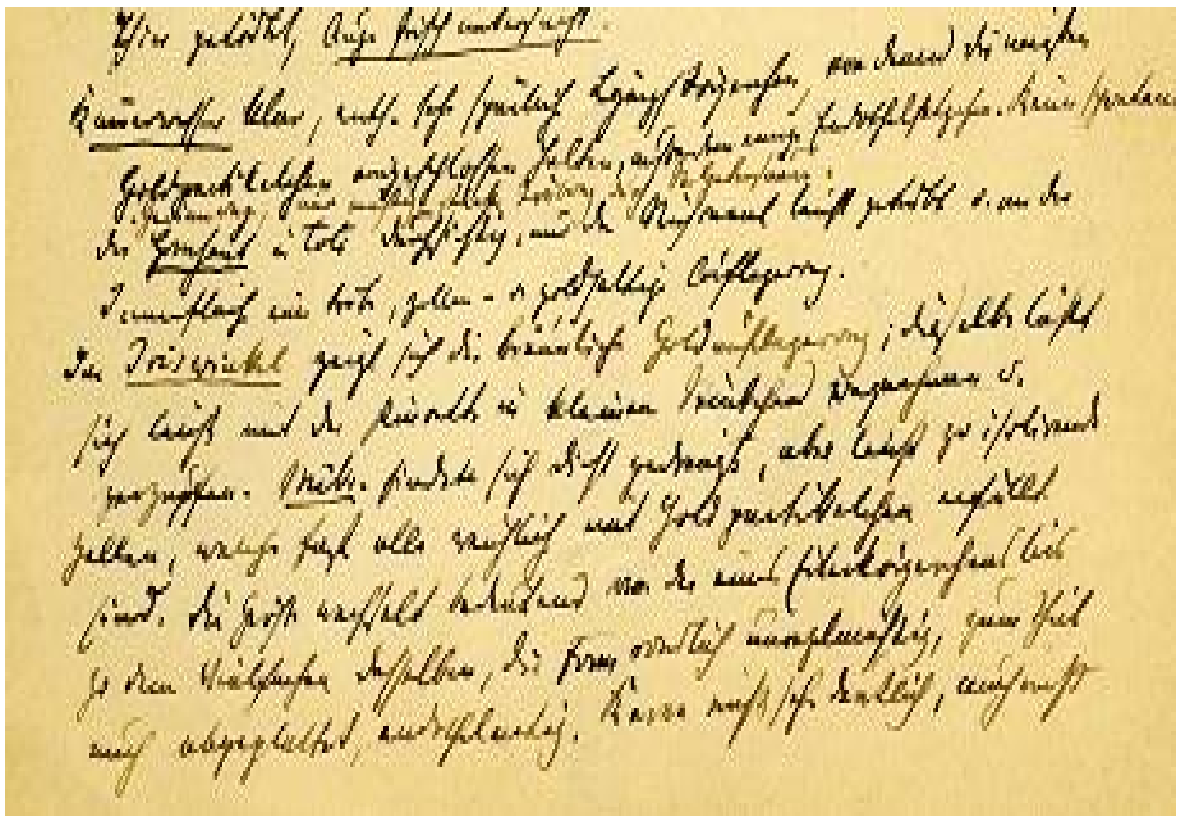 Thier getödtet, Auge frisch untersucht.
Kammerwasser klar, enth. sehr spärlich Lymphkörperchen, von denen die meisten
Goldpartikelchen eingeschlossen halten, außerdem einige Endothelfetzchen. Keine
die Hornhaut in toto durchsichtig, und an der
Innenfläche eine trübe, zellen- u goldhaltige Auflagerung.
Im Iriswinkel zeigt sich die bräunliche Goldauflagerung; dieselbe läßt
sich leicht mit der Pincette in kleinen Stückchen wegnehmen u.
zerzupfen. Mikr. finden sich dicht gedrängte, aber leicht zu isolirende
Zellen, welche fast alle reichlich mit Goldpartikelchen erfüllt
sind. Die Größe wechselt bedeutend von der eines Eiterkörperchens bis
zu dem Vielfachen desselben, die Form ziemlich unregelmäßig, zum Theil
auch abgeplattet, endothelartig. Kerne nicht sehr deutlich, auch nicht